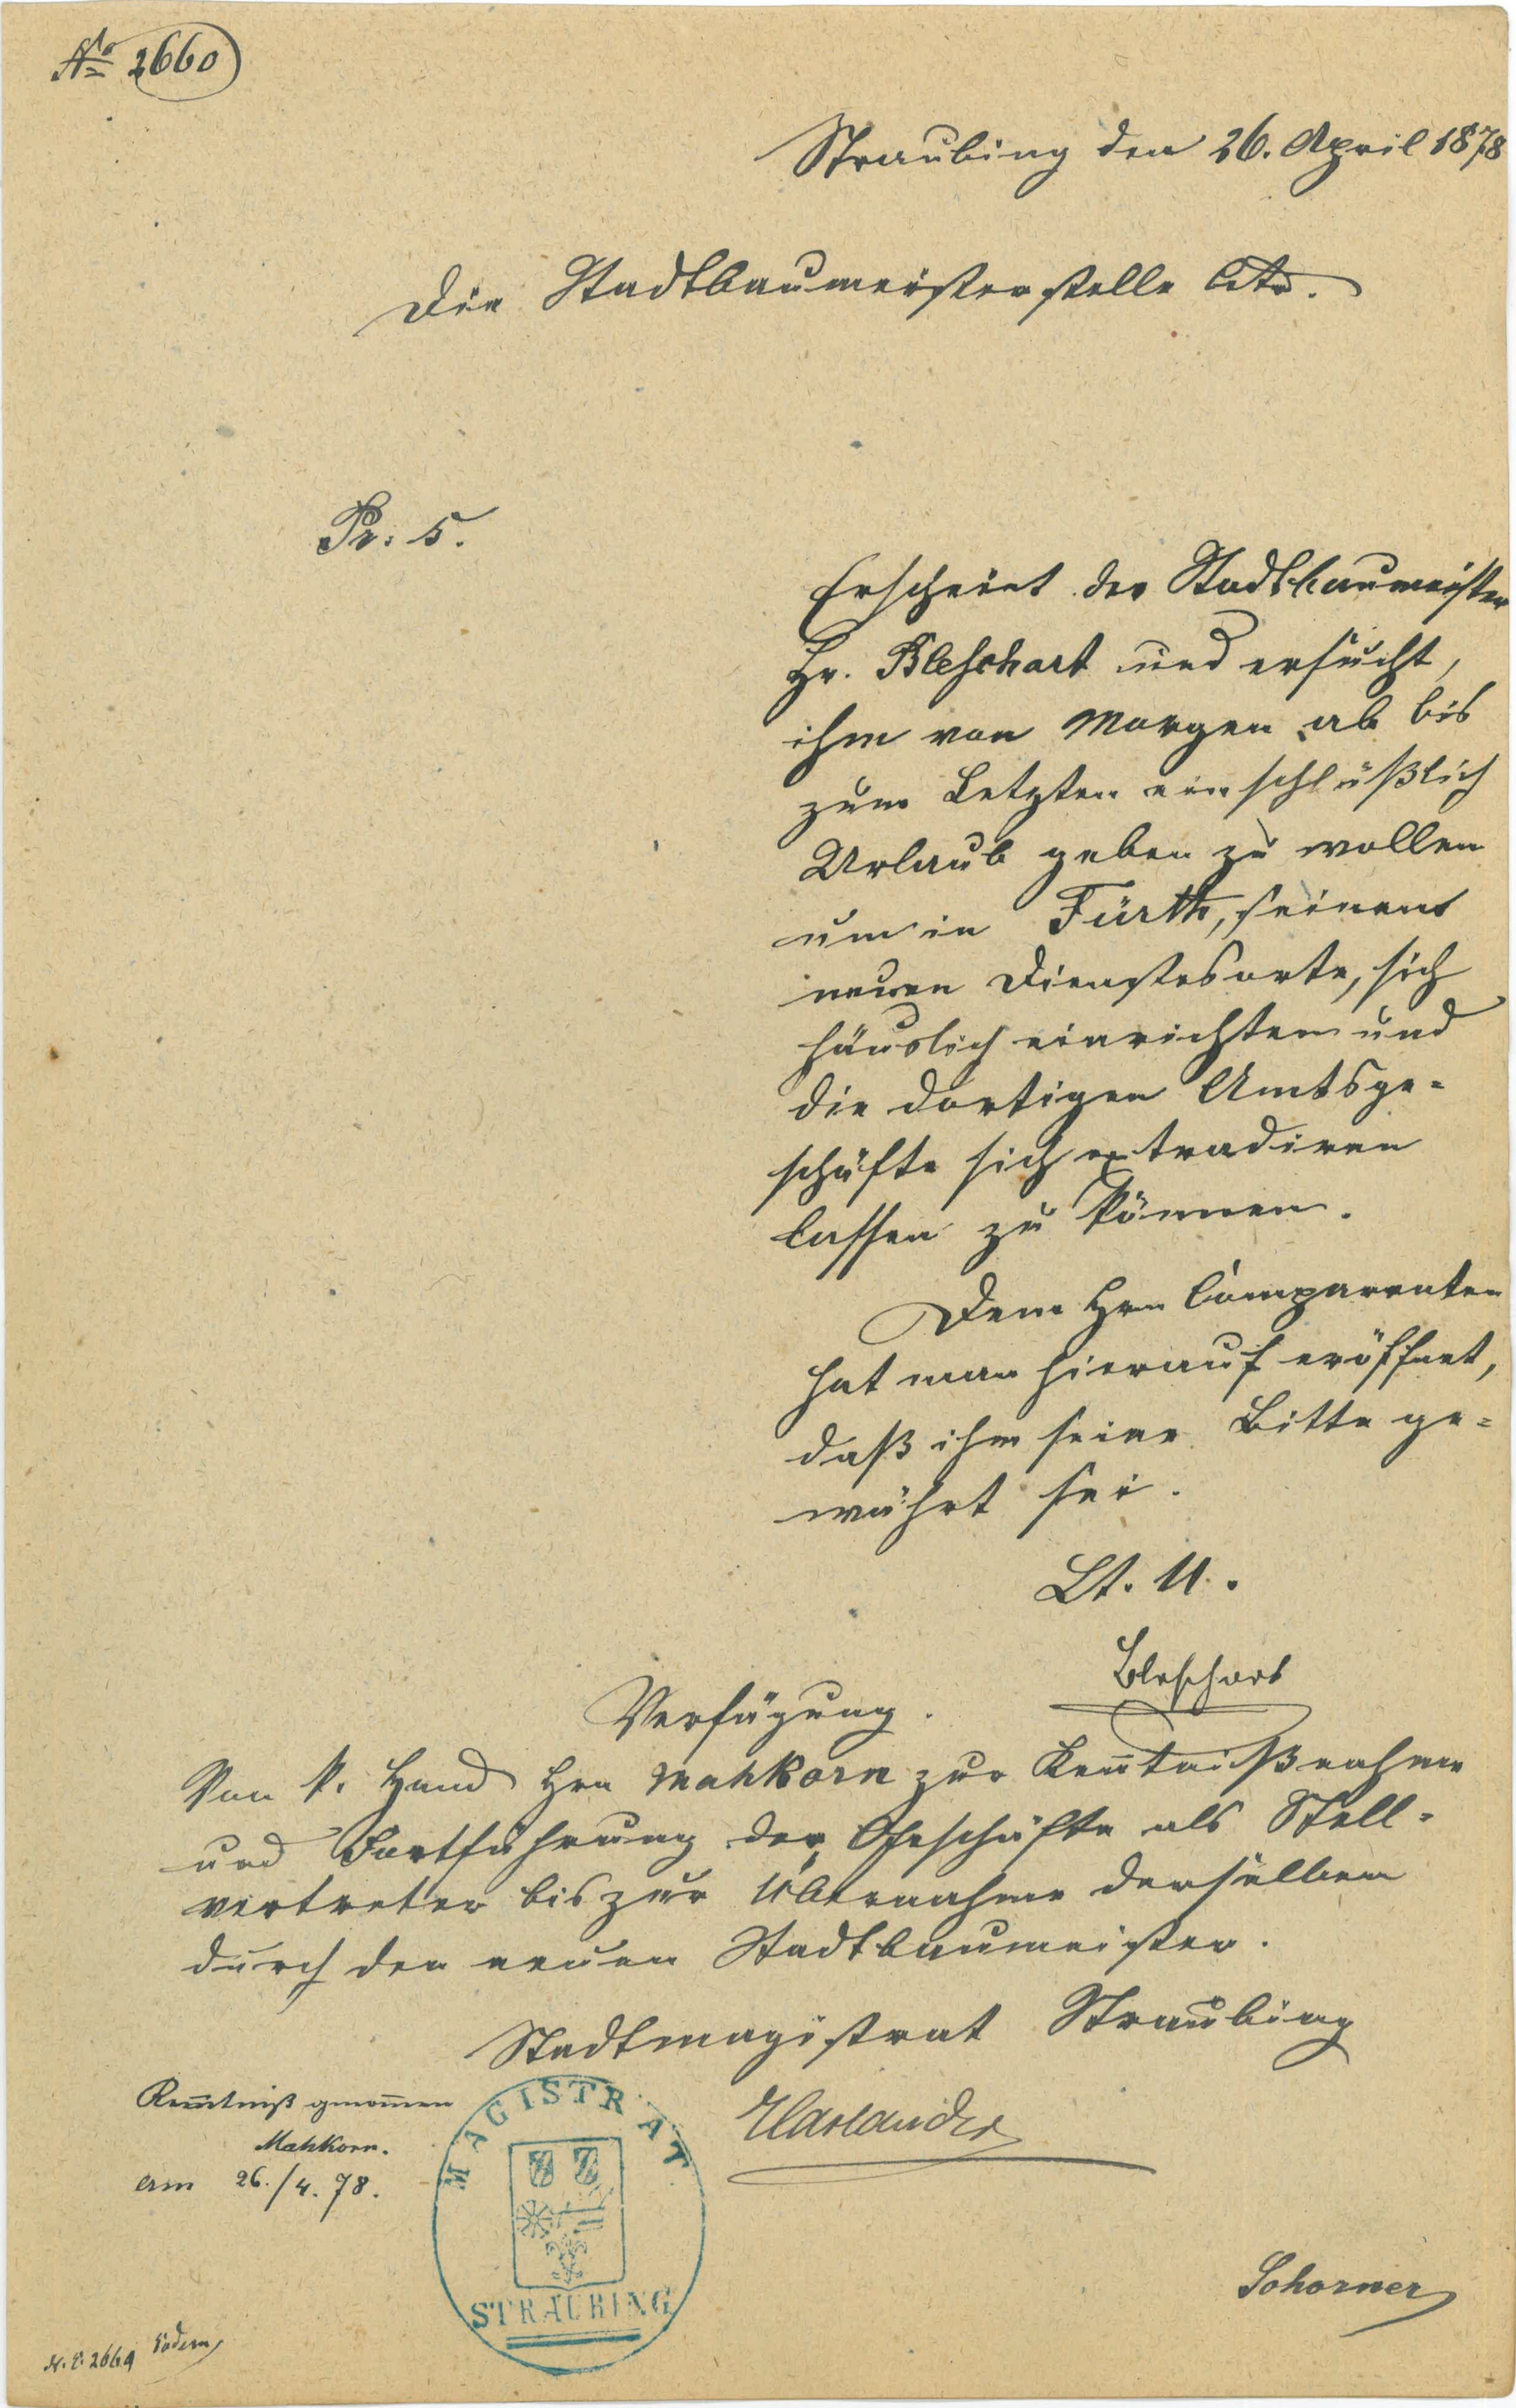 No 2660
Straubing den 26. April 1878
Die Stadtbaumeisterstelle betr.
Pr: 5.
Erscheint der Stadtbaumeister
Hr. Bleschart und ersucht,
ihm von Morgen ab bis
zum Letzten einschlüßlich
Urlaub geben zu wollen
um in Fürth, seinem
neuen Dienstesorte, sich
häuslich einrichten und
die dortigen Amtsge-
schäfte sich extradiren
lassen zu können.
Dem Hrn Comparenten
hat man hierauf eröffnet,
daß ihm seine Bitte ge-
währt sei.
Lt. U.
Bleschart
Verfügung.
Von k. Hand Hrn Mahkorn zur Kenntnißnahme
und Fortführung der Geschäfte als Stell-
vertreter bis zur Übernahme derselben
durch den neuen Stadtbaumeister.
Stadtmagistrat Straubing
Kenntniß genommen
Mahkorn.
am 26./4. 78.
Harlander
MAGISTRAT
STRAUBING
Schorner
2664